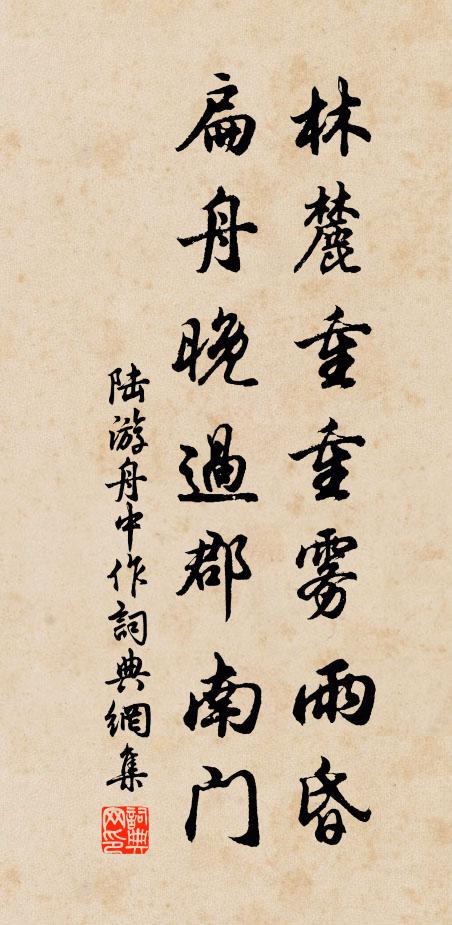 林麓重重雾雨昏
扁舟晚過郡南门
陆游舟中作詞典網集
詞典网印